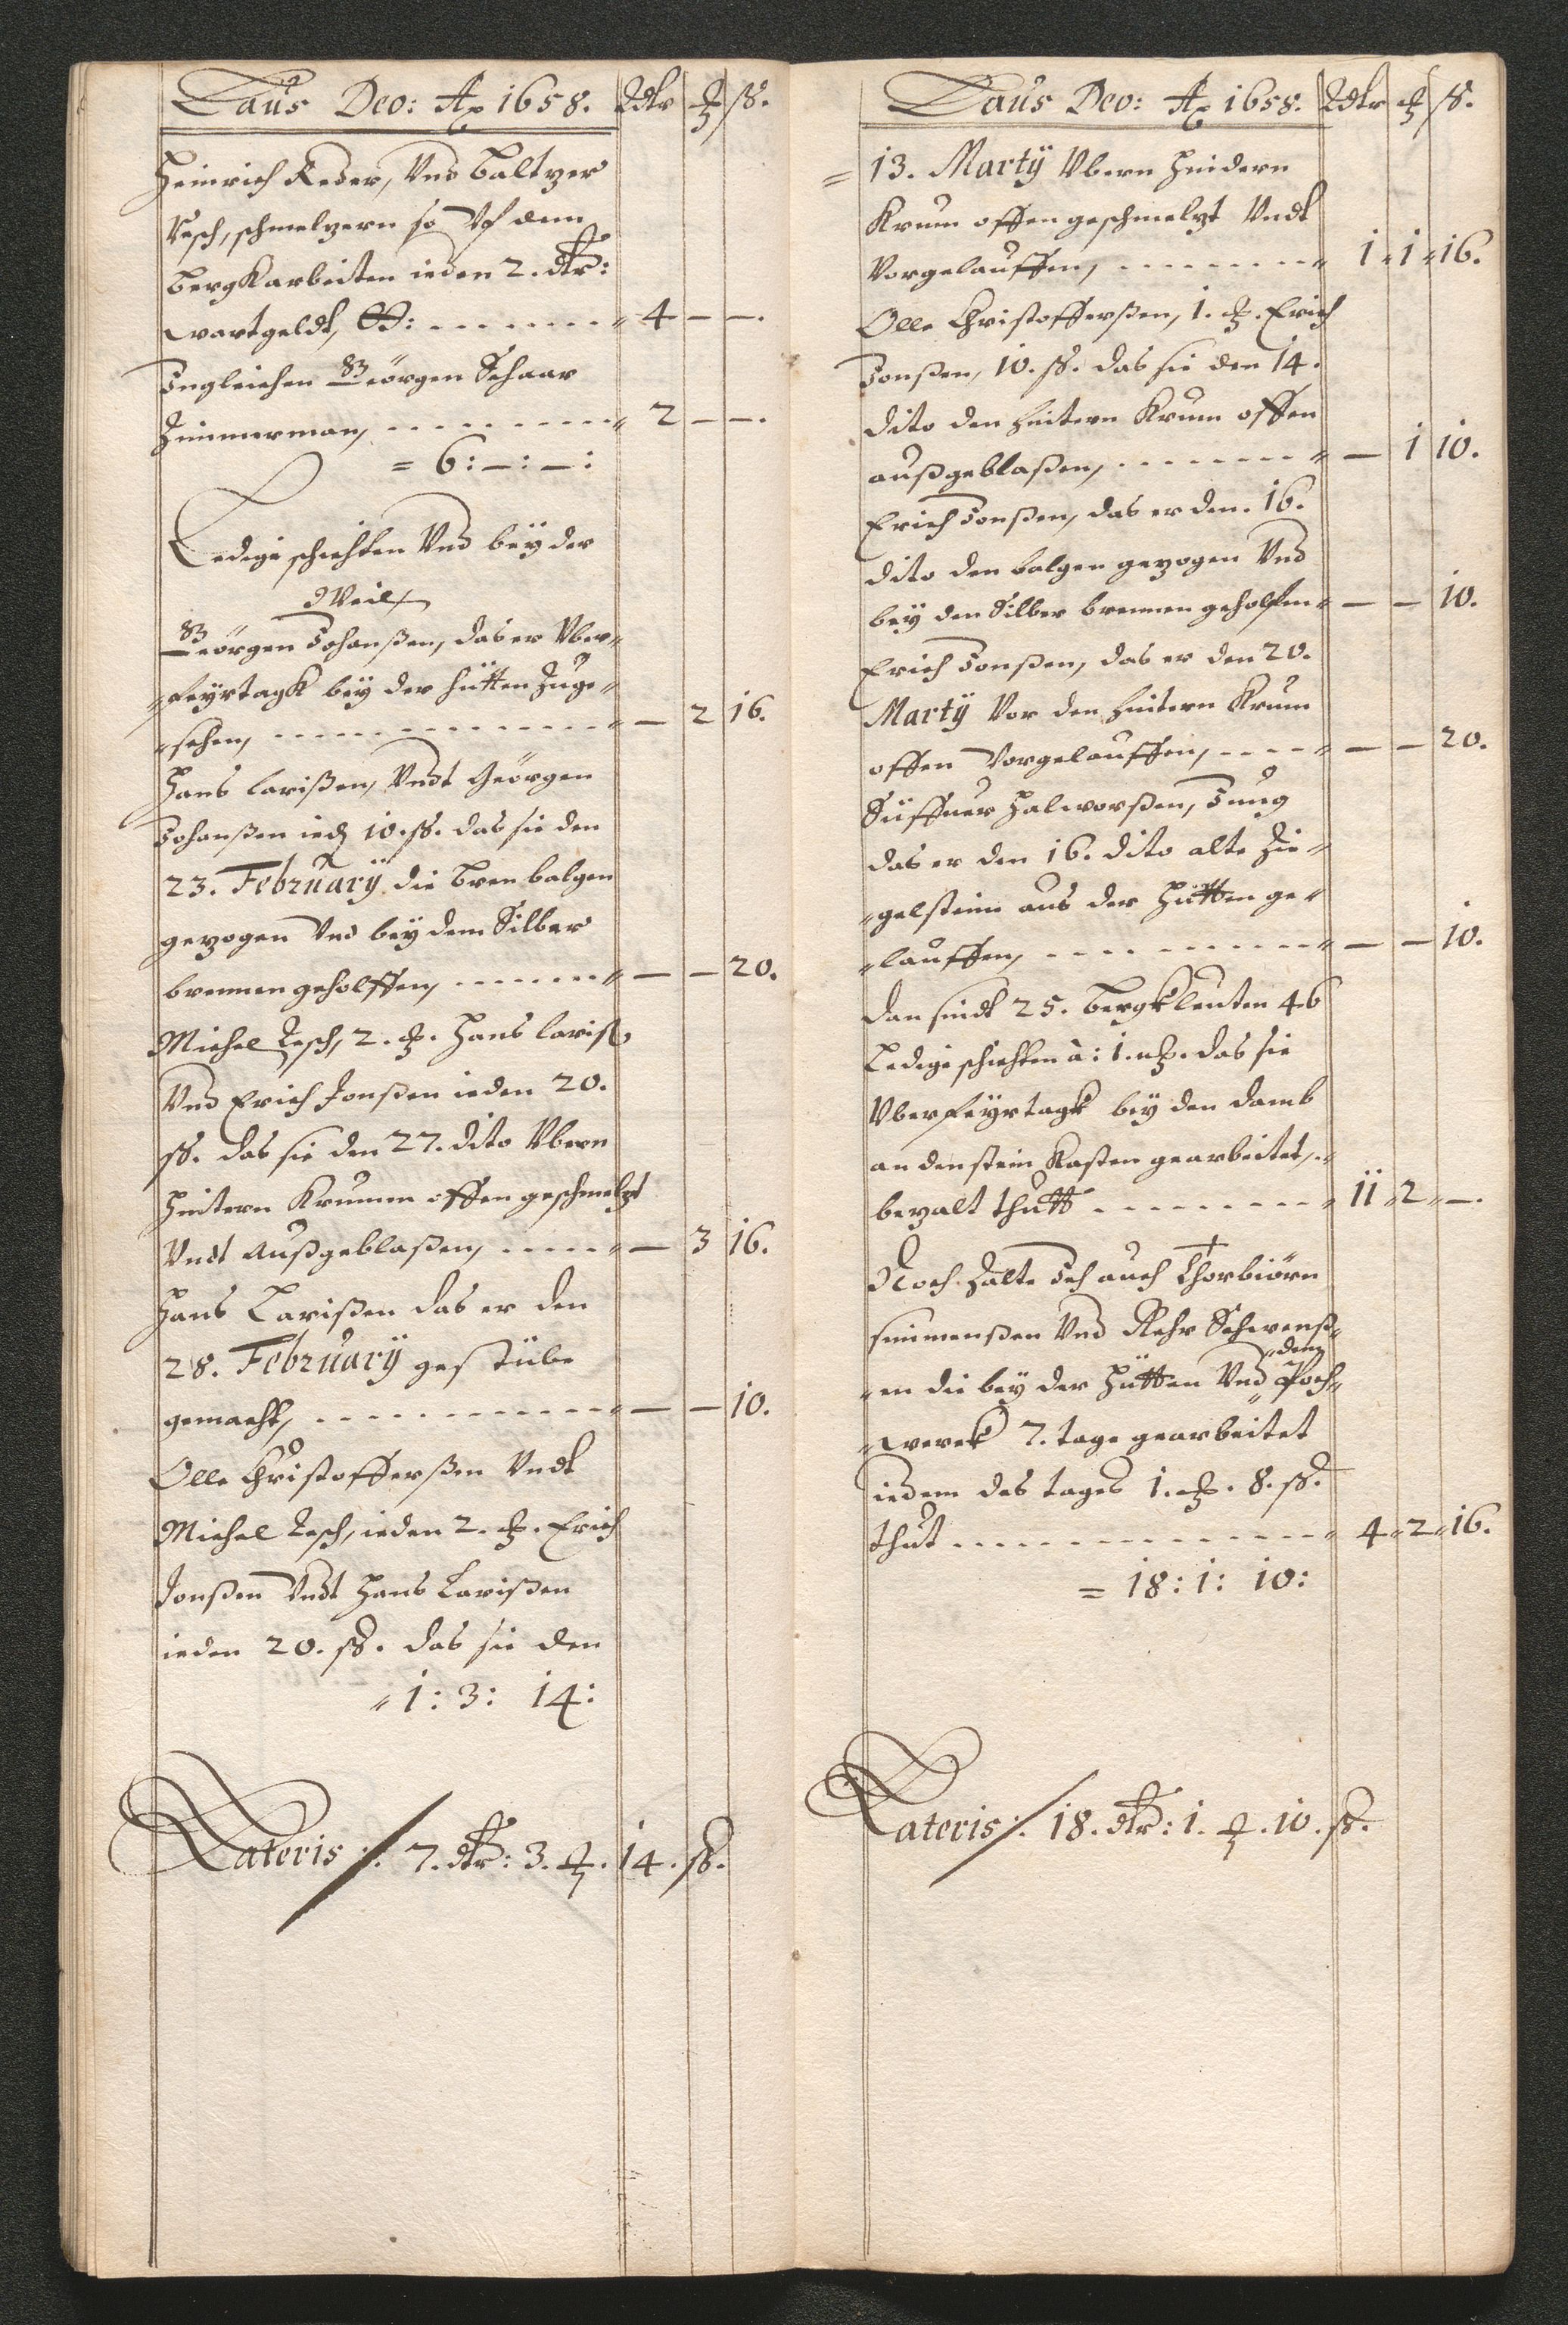 Laus Deo: Ao 1658. Rdtr ȝ ß.
Heinrich Reder, Vnd Baltzer
Resch, schmelzern so Vf dem
bergk arbeiten ieden 2. dtr:
wartgeldt, 4 — —.
Ingleichen Geörgen Schaar
Zimmerman, 2 — —.
= 6: —: —:
Ledige schichten Vnd beÿ der
Weil,
Geörgen Johanßen, das er Vber„
„feyrtagk beÿ der hütten Zuge„
„sehen, — 2 16.
Hans Larißen, Vndt Geörgen
Johanßen ied 10. ß. das sie den
23. Februarÿ die bren balgen
gezogen Vnd beÿ dem Silber
brennen geholffen, — — 20.
Michel Resch, 2. ȝ. Hans Lariß.
Vnd Erich Jonßen ieden 20.
ß. das sie den 27. dito Vbern
hintern Krummen offen geschmelzt
Vndt außgeblaßen, — 3 16.
Hans Larißen das er den
28. Februarÿ gestübe
gemacht, — — 10.
Olle Christofferßen Vndt
Michel Resch, ieden 2. ȝ. Erich
Jonßen Vndt Hans Larißen
ieden 20. ß. das sie den
„ 1: 3: 14:
Lateris :/: 7. dtr: 3. ȝ. 14. ß.
Laus Deo: Ao 1658. Rdtr ȝ ß.
= 13. Martÿ Vbern hindern
Krum offen geschmelzt Vndt
Vorgelauffen, 1 „ 1 „ 16.
Olle Christofferßen, 1. ȝ. Erich
Jonßen, 10. ß. das sie den 14.
dito den hintern Krum offen
außgeblaßen, — 1 10.
Erich Jonßen, das er den. 16.
dito den balgen gezogen Vnd
beÿ den Silber brennen geholffen — — 10.
Erich Jonßen, das er den 20.
Martÿ Vor den hintern Krum
offen Vorgelauffen, — — 20.
Halworßen, Jung
das er den 16. dito alte Zie„
„gelsteine aus der Hütten ge„
„lauffen, — — 10.
Dan sindt 25. bergkleuten 46
Ledige schichten à: 1. ȝ. das sie
Vber feyrtagk beÿ den damb
an den stein Kasten gearbeitet,
bezalt thutt 11 „ 2 „ —.
Noch Zalte Ich auch Thorbiörn
Simmenßen Vnd Schwenß„
„en die beÿ der Hütten Vnd „dem„ Poch„
„werck 7. tage gearbeitet
iedem des tages 1. ȝ. 8. ß.
thut 4 „ 2 „ 16.
= 18: 1: 10:
Lateris :/: 18. dtr: 1. ȝ. 10. ß.